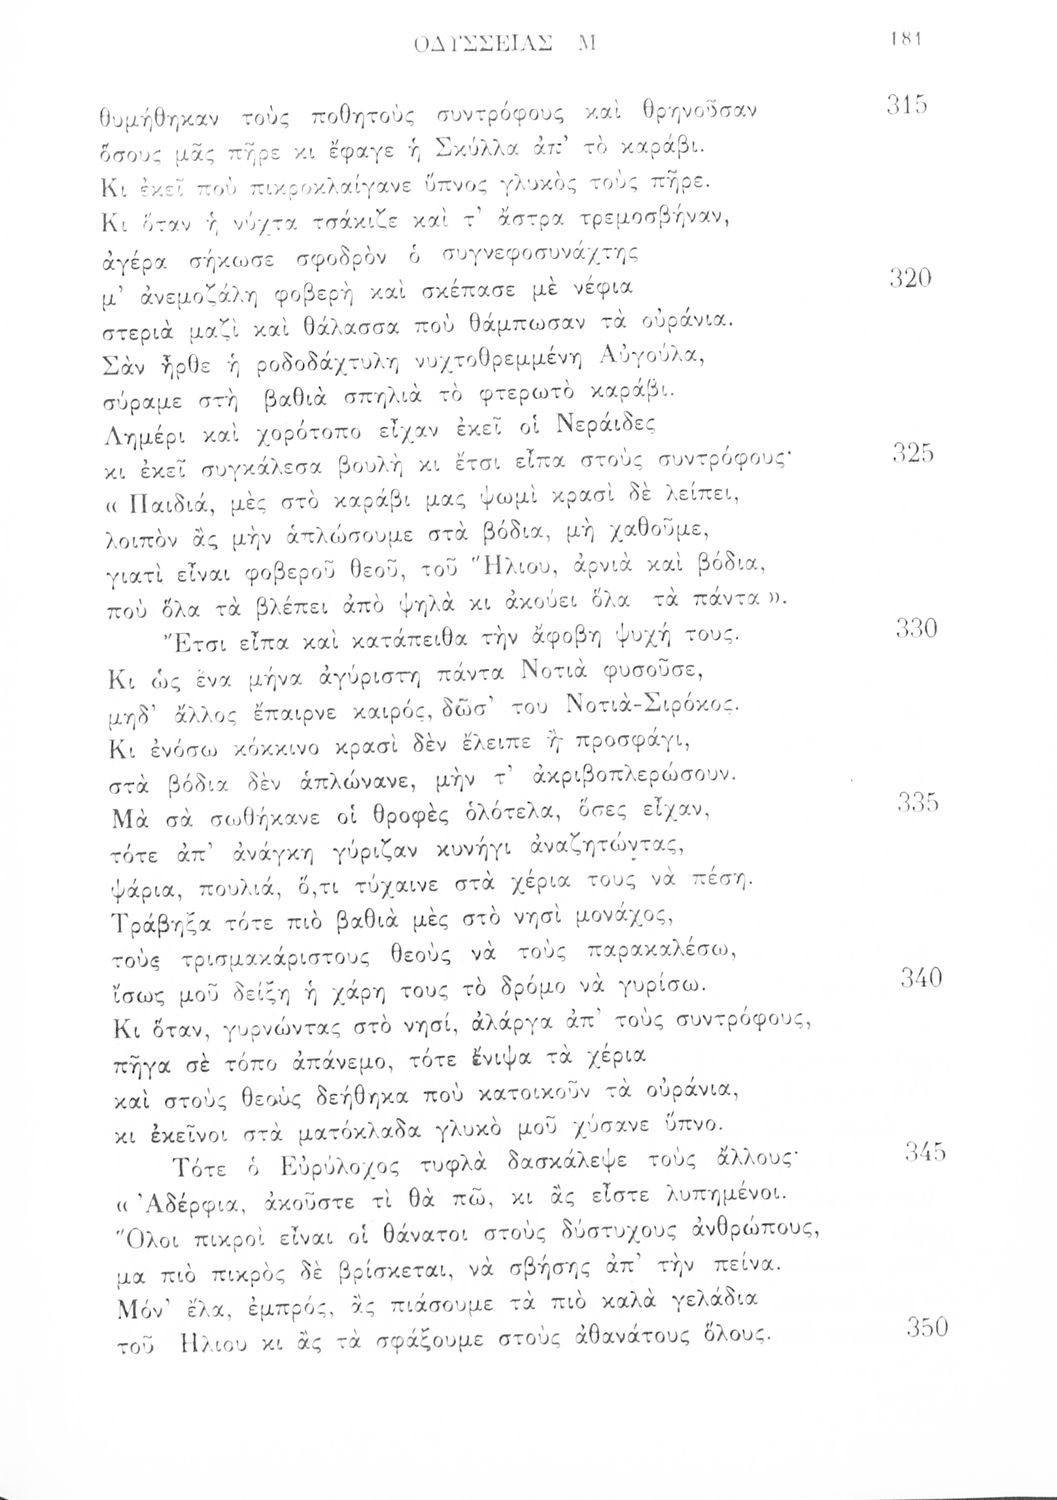 ΟΔΥΣΣΕΙΑΣ Μ 181
θυμήθηκαν τοὺς ποθητοὺς συντρόφους καὶ θρηνοῦσαν 315
ὅσους μᾶς πῆρε κι ἔφαγε ἡ Σκύλλα ἀπ’ τὸ καράβι.
Κι ἐκεῖ ποὺ πικροκλαίγανε ὕπνος γλυκὸς τοὺς πῆρε.
Κι ὅταν ἡ νύχτα τσάκιζε καὶ τ’ ἄστρα τρεμοσβήναν,
ἀγέρα σήκωσε σφοδρὸν ὁ συγνεφοσυνάχτης
μ’ ἀνεμοζάλη φοβερὴ καὶ σκέπασε μὲ νέφια 320
στεριὰ μαζὶ καὶ θάλασσα ποὺ θάμπωσαν τὰ οὐράνια.
Σὰν ἦρθε ἡ ροδοδάχτυλη νυχτοθρεμμένη Αὐγούλα,
σύραμε στὴ βαθιὰ σπηλιὰ τὸ φτερωτὸ καράβι.
Λημέρι καὶ χορότοπο εἶχαν ἐκεῖ οἱ Νεράιδες
κι ἐκεῖ συγκάλεσα βουλὴ κι ἔτσι εἶπα στοὺς συντρόφους· 325
« Παιδιά, μὲς στὸ καράβι μας ψωμὶ κρασὶ δὲ λείπει,
λοιπὸν ἂς μὴν ἁπλώσουμε στὰ βόδια, μὴ χαθοῦμε,
γιατὶ εἶναι φοβεροῦ θεοῦ, τοῦ Ἥλιου, ἀρνιὰ καὶ βόδια,
ποὺ ὅλα τὰ βλέπει ἀπὸ ψηλὰ κι ἀκούει ὅλα τὰ πάντα ».
Ἔτσι εἶπα καὶ κατάπειθα τὴν ἄφοβη ψυχή τους. 330
Κι ὡς ἕνα μήνα ἀγύριστη πάντα Νοτιὰ φυσοῦσε,
μηδ’ ἄλλος ἔπαιρνε καιρός, δῶσ’ του Νοτιὰ-Σιρόκος.
Κι ἐνόσω κόκκινο κρασὶ δὲν ἔλειπε ἢ προσφάγι,
στὰ βόδια δὲν ἁπλώνανε, μὴν τ’ ἀκριβοπλερώσουν.
Μὰ σὰ σωθήκανε οἱ θροφὲς ὁλότελα, ὅσες εἶχαν, 335
τότε ἀπ’ ἀνάγκη γύριζαν κυνήγι ἀναζητώντας,
ψάρια, πουλιά, ὅ,τι τύχαινε στὰ χέρια τους νὰ πέση.
Τράβηξα τότε πιὸ βαθιὰ μὲς στὸ νησὶ μονάχος,
τοὺς τρισμακάριστους θεοὺς νὰ τοὺς παρακαλέσω,
ἴσως μοῦ δείξη ἡ χάρη τους τὸ δρόμο νὰ γυρίσω. 340
Κι ὅταν, γυρνώντας στὸ νησί, ἀλάργα ἀπ’ τοὺς συντρόφους,
πῆγα σὲ τόπο ἀπάνεμο, τότε ἔνιψα τὰ χέρια
καὶ στοὺς θεοὺς δεήθηκα ποὺ κατοικοῦν τὰ οὐράνια,
κι ἐκεῖνοι στὰ ματόκλαδα γλυκὸ μοῦ χύσανε ὕπνο.
Τότε ὁ Εὐρύλοχος τυφλὰ δασκάλεψε τοὺς ἄλλους· 345
« Ἀδέρφια, ἀκοῦστε τὶ θὰ πῶ, κι ἂς εἶστε λυπημένοι.
Ὅλοι πικροὶ εἶναι οἱ θάνατοι στοὺς δύστυχους ἀνθρώπους,
μα πιὸ πικρὸς δὲ βρίσκεται, νὰ σβήσης ἀπ’ τὴν πείνα.
Μόν’ ἔλα, ἐμπρός, ἂς πιάσουμε τὰ πιὸ καλὰ γελάδια
τοῦ Ηλιου κι ἂς τὰ σφάξουμε στοὺς ἀθανάτους ὅλους. 350